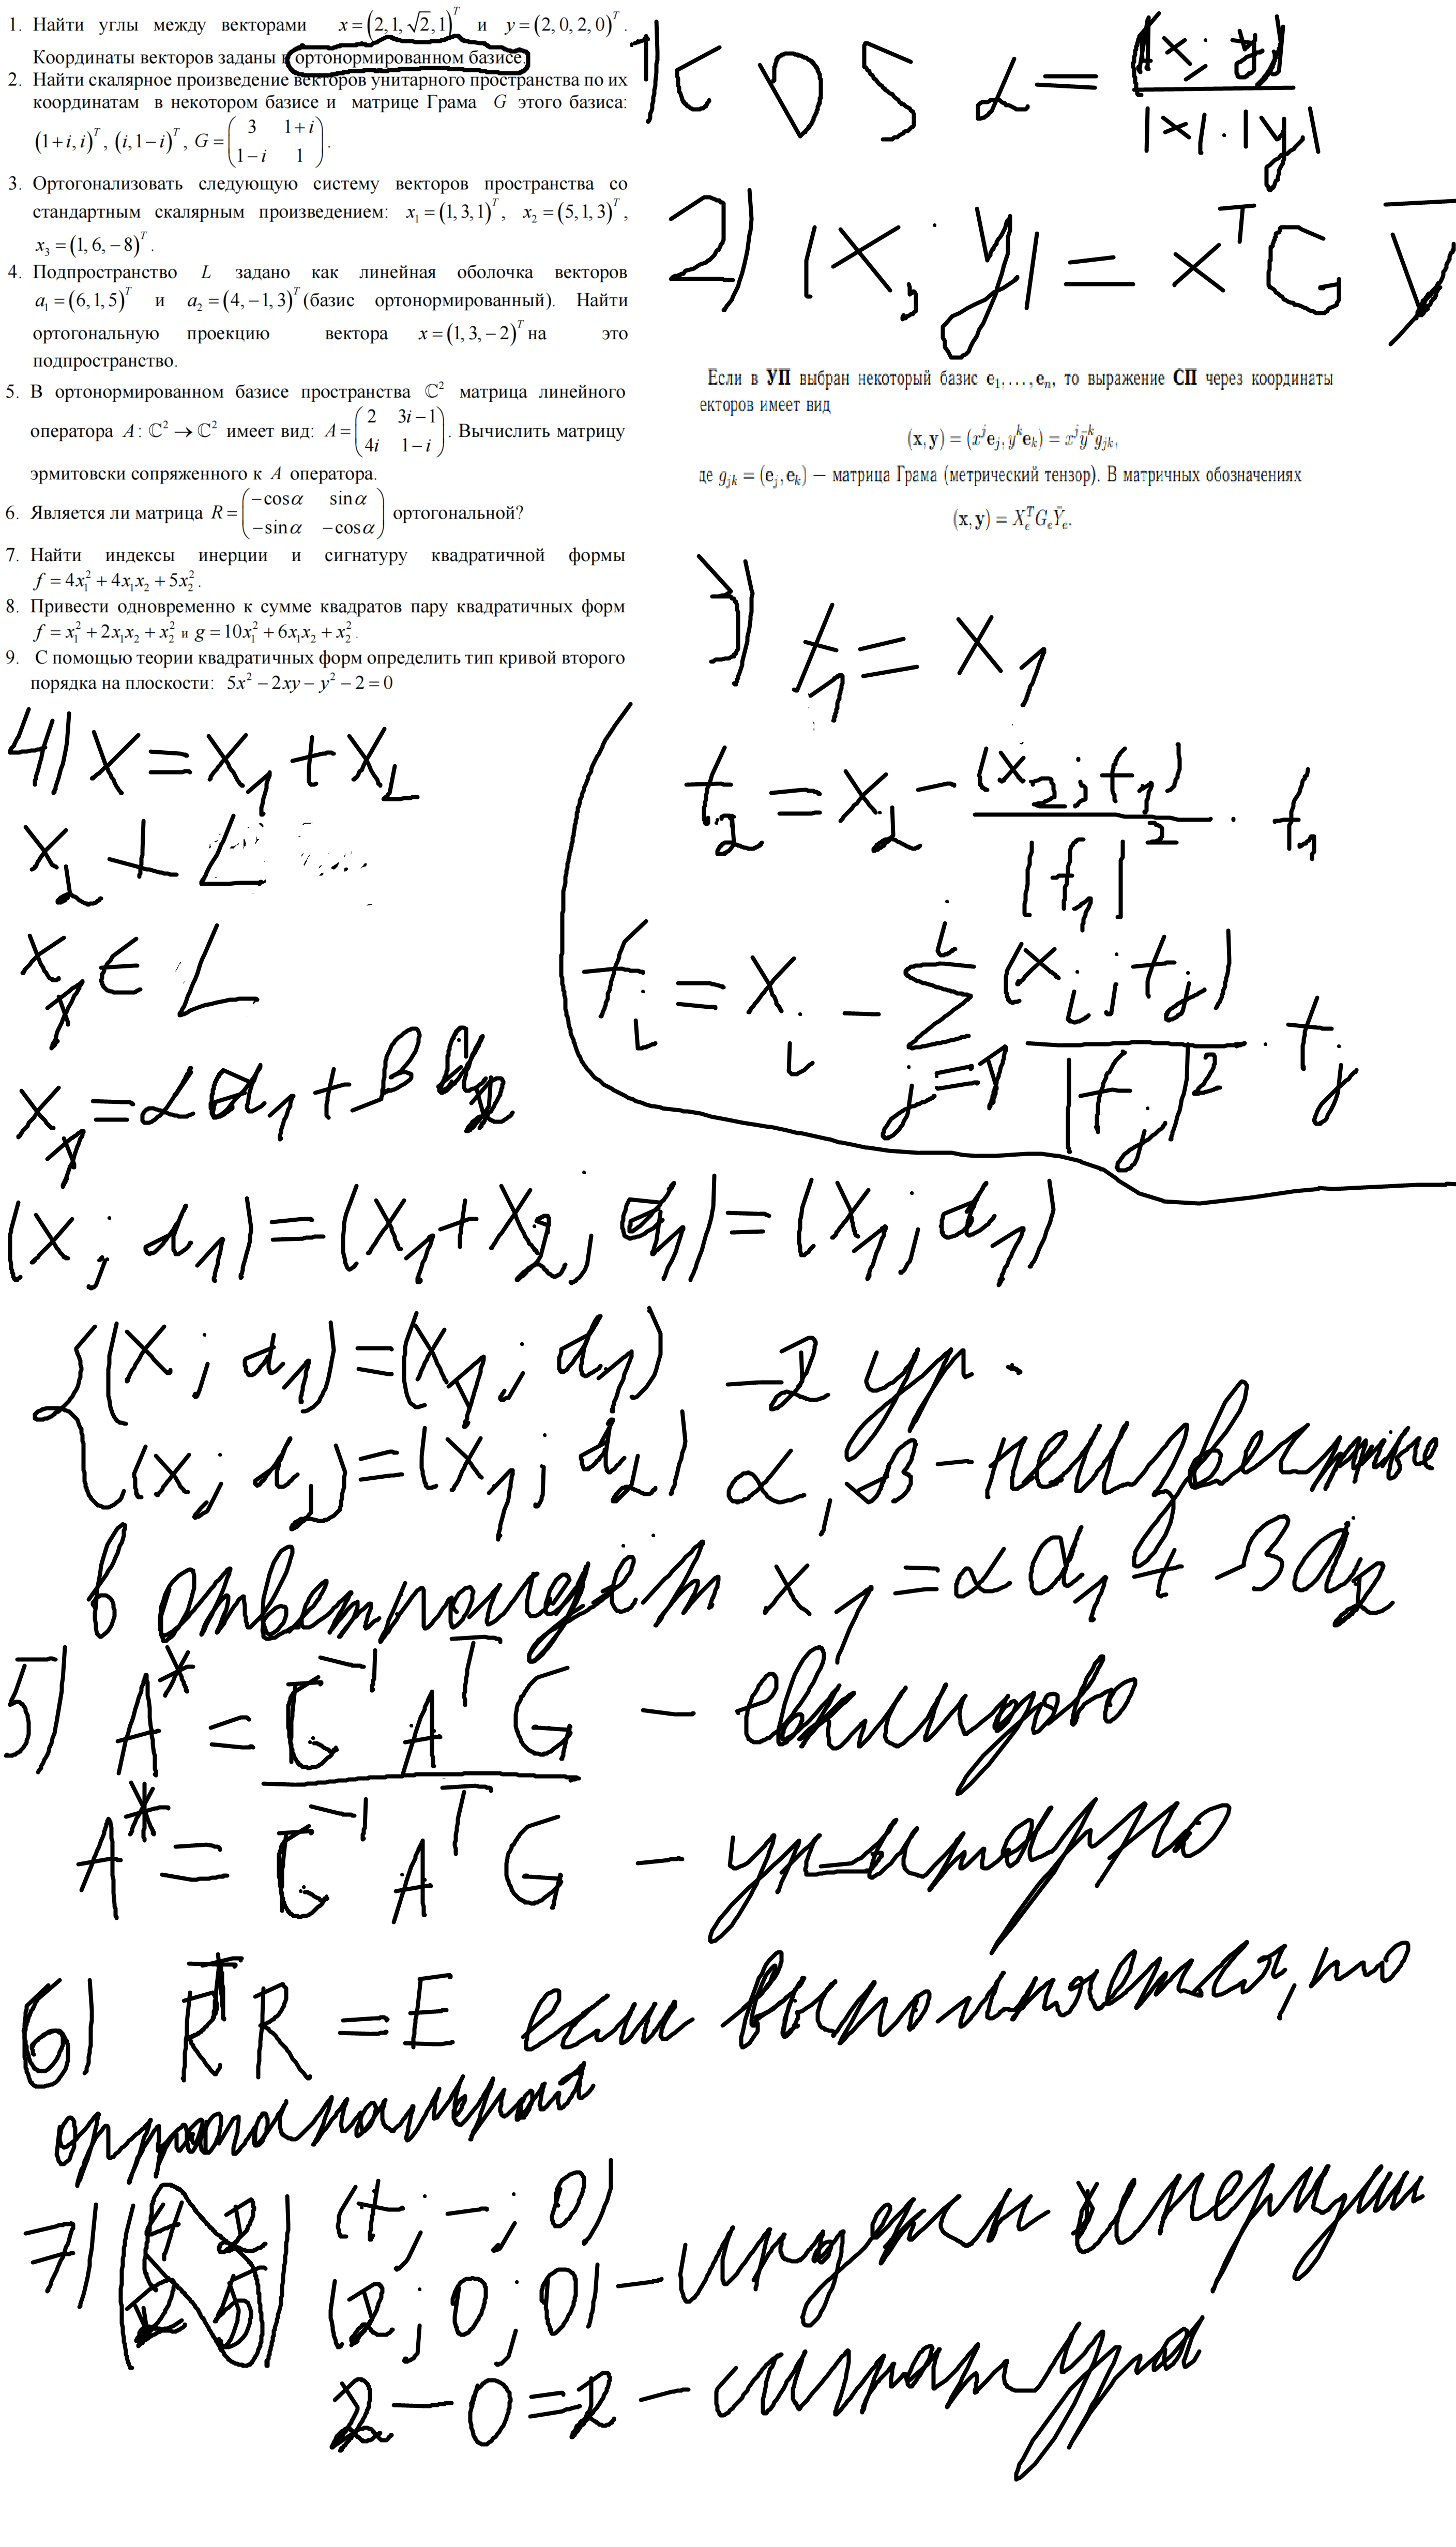 1. Найти углы между векторами x = (2, 1, √2, 1)^T и y = (2, 0, 2, 0)^T.
Координаты векторов заданы в ортонормированном базисе.
2. Найти скалярное произведение векторов унитарного пространства по их
координатам в некотором базисе и матрице Грама G этого базиса:
(1+i, i)^T, (i, 1−i)^T, G = (3 1+i; 1−i 1).
3. Ортогонализовать следующую систему векторов пространства со
стандартным скалярным произведением: x₁ = (1, 3, 1)^T, x₂ = (5, 1, 3)^T,
x₃ = (1, 6, −8)^T.
4. Подпространство L задано как линейная оболочка векторов
a₁ = (6, 1, 5)^T и a₂ = (4, −1, 3)^T (базис ортонормированный). Найти
ортогональную проекцию вектора x = (1, 3, −2)^T на это
подпространство.
5. В ортонормированном базисе пространства ℂ² матрица линейного
оператора A: ℂ² → ℂ² имеет вид: A = (2 3i−1; 4i 1−i). Вычислить матрицу
эрмитовски сопряженного к A оператора.
6. Является ли матрица R = (−cosα sinα; −sinα −cosα) ортогональной?
7. Найти индексы инерции и сигнатуру квадратичной формы
f = 4x₁² + 4x₁x₂ + 5x₂².
8. Привести одновременно к сумме квадратов пару квадратичных форм
f = x₁² + 2x₁x₂ + x₂² и g = 10x₁² + 6x₁x₂ + x₂².
9. С помощью теории квадратичных форм определить тип кривой второго
порядка на плоскости: 5x² − 2xy − y² − 2 = 0
1) cos α = (x; y) / |x|·|y|
2) (x; y) = x^T G y̅
Если в УП выбран некоторый базис e₁,…,eₙ, то выражение СП через координаты
екторов имеет вид
(x, y) = (x^j e_j, y^k e_k) = x^j y̅^k g_jk,
де g_jk = (e_j, e_k) — матрица Грама (метрический тензор). В матричных обозначениях
(x, y) = X_e^T G_e Y̅_e.
3) f₁ = x₁
f₂ = x₂ − (x₂; f₁) / |f₁|² · f₁
f_i = x_i − Σ_{j=1}^{i} (x_i; f_j) / |f_j|² · f_j
4) x = x₁ + x₂
x₂ ⊥ L
x₁ ∈ L
x₁ = α a₁ + β a₂
(x; a₁) = (x₁ + x₂; a₁) = (x₁; a₁)
{ (x; a₁) = (x₁; a₁) − 2 ур.
(x; a₂) = (x₁; a₂) α, β − неизвестные
в ответ пойдёт x₁ = α a₁ + β a₂
5) A* = G⁻¹ A^T G − евклидово
A* = G⁻¹ A^T G − унитарно
6) R^T R = E если выполняется, то
ортогональная
7) (4 2; 2 5) (+; −; 0)
(2; 0; 0) − индексы инерции
2 − 0 = 2 − сигнатура